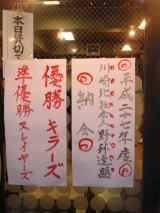 本日貸切
平成二十一年度
川崎北社会人野球連盟
納会
優勝 キラーズ
準優勝 スレイヤーズ